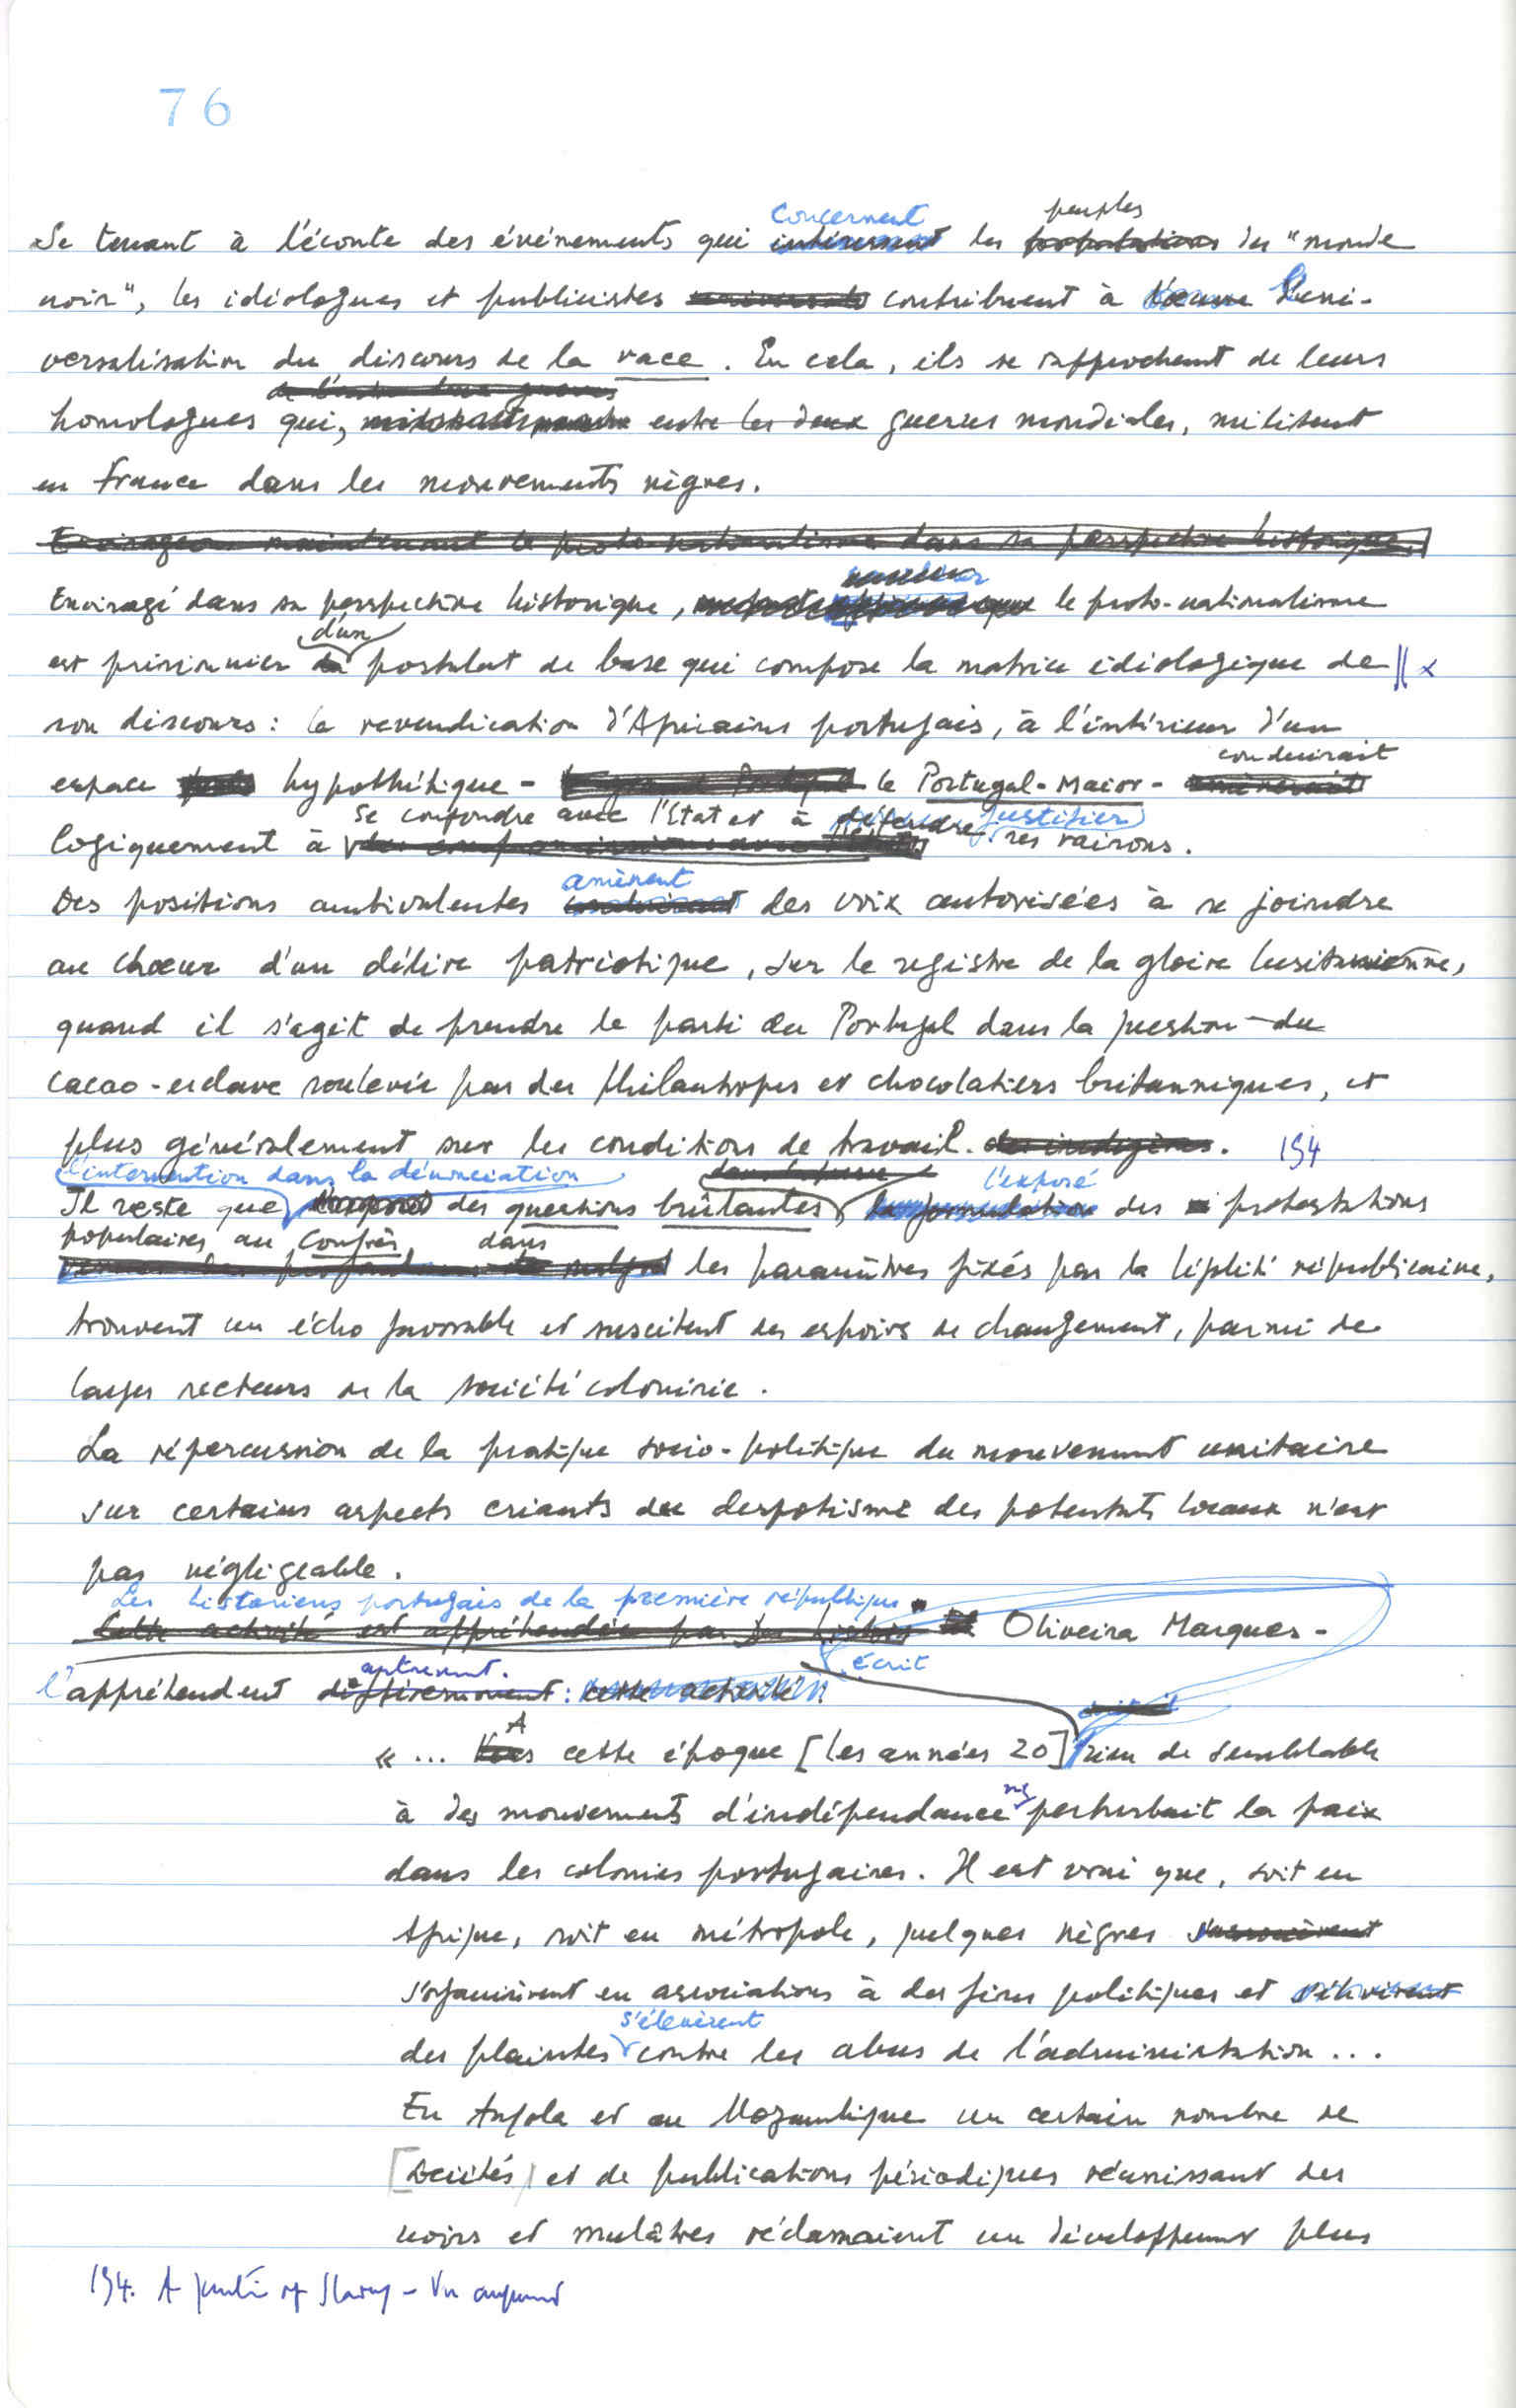 76
Se tenant à l'écoute des événements qui concernent les peuples du "monde
noir", les idéologues et publicistes contribuent à l'uni-
versalisation du discours de la race. En cela, ils se rapprochent de leurs
homologues qui, entre les deux guerres mondiales, militent
en France dans les mouvements nègres.
Envisageons maintenant le proto-nationalisme dans sa perspective historique.
Envisagé dans sa perspective historique, le proto-nationalisme
est prisonnier d'un postulat de base qui compose la matrice idéologique de
son discours : la revendication d'Africains portugais, à l'intérieur d'un
espace hypothétique - le Portugal-Maior - conduirait
logiquement à se confondre avec l'Etat et à défendre justifier ses raisons.
Des positions ambivalentes amènent des voix autorisées à se joindre
au chœur d'un délire patriotique, sur le registre de la gloire lusitanienne,
quand il s'agit de prendre le parti du Portugal dans la question du
cacao-esclave soulevée par des philantropes et chocolatiers britanniques, et
plus généralement sur les conditions de travail. des indigènes. 194
l'intervention dans la dénonciation
Il reste que l'exposé des questions brûlantes, l'exposé des protestations
populaires au Congrès, dans les paramètres fixés par la légalité républicaine,
trouvent un écho favorable et suscitent des espoirs de changement, parmi de
larges secteurs de la société colonisée.
La répercussion de la pratique socio-politique du mouvement unitaire
sur certains aspects criants du despotisme des potentats locaux n'est
pas négligeable.
Les historiens portugais de la première république
Cette activité est appréhendée par Oliveira Marques -
l'appréhendent différemment autrement : cette activité écrit
« ... A cette époque [les années 20] rien de semblable
à des mouvements d'indépendance ne perturbait la paix
dans les colonies portugaises. Il est vrai que, soit en
Afrique, soit en métropole, quelques nègres
s'organisèrent en associations à des fins politiques et
des plaintes s'élevèrent contre les abus de l'administration ...
En Angola et au Mozambique un certain nombre de
[sociétés] et de publications périodiques réunissant des
noirs et mulâtres réclamaient un développement plus
194. A